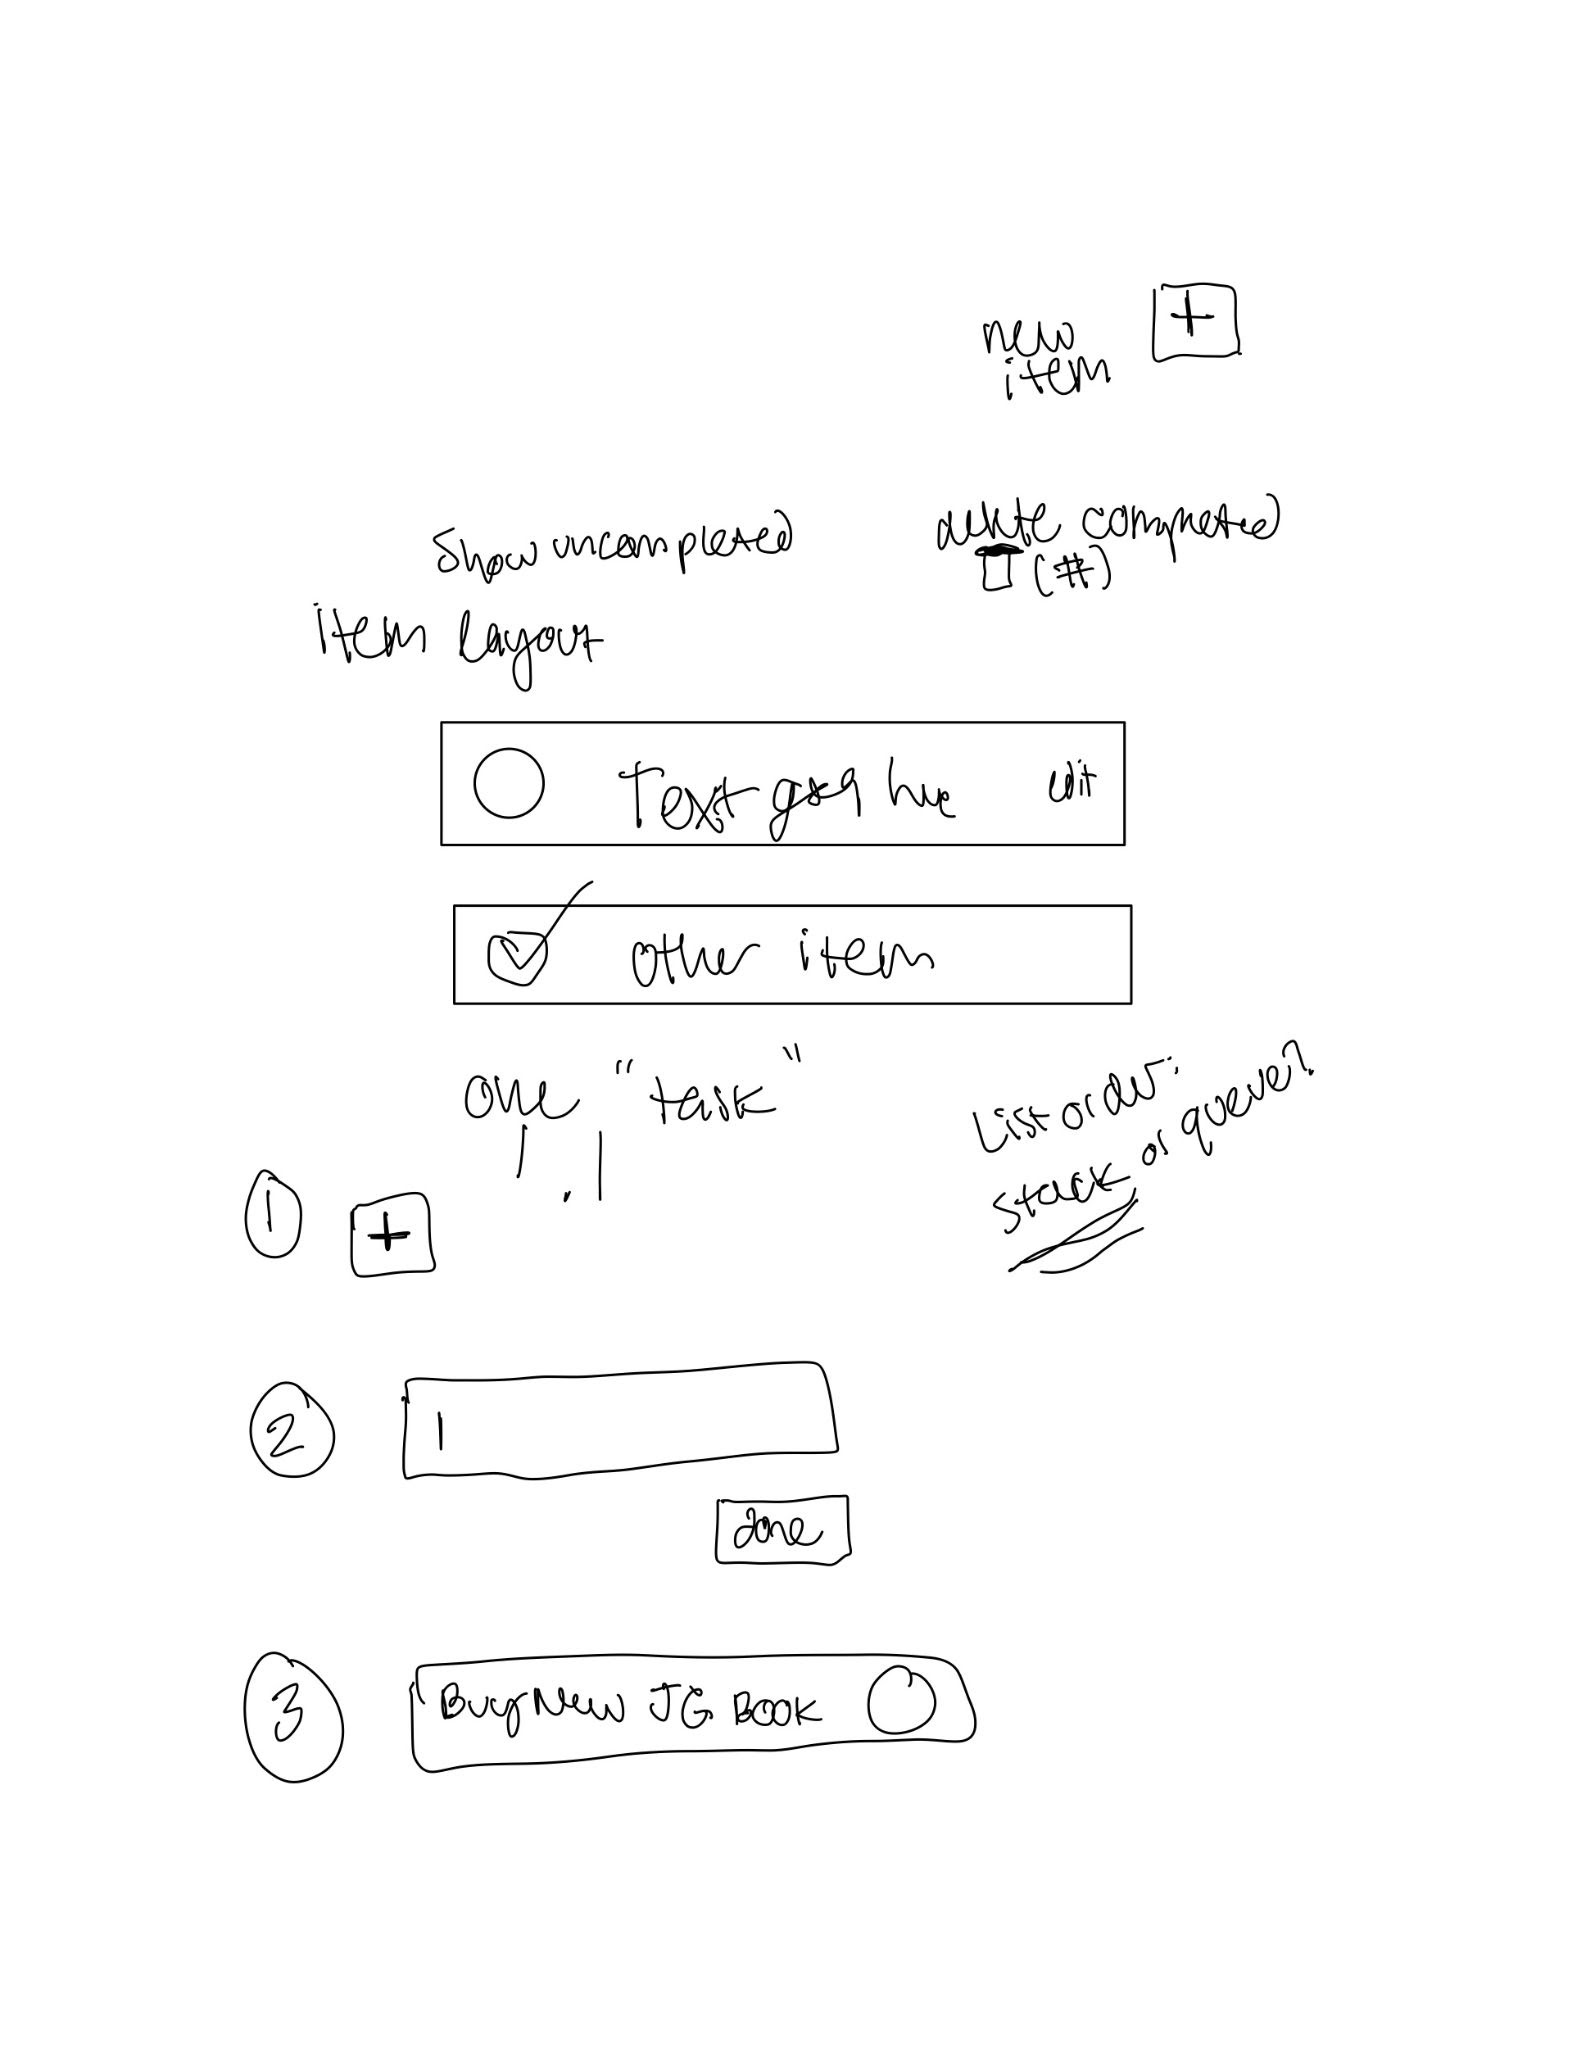 new
item
+
show uncompleted
delete completed
(#)
item layout
Text goes here
edit
other item
one "task"
List order:
stack or queue?
1
+
2
done
3
Buy New JG BOOK